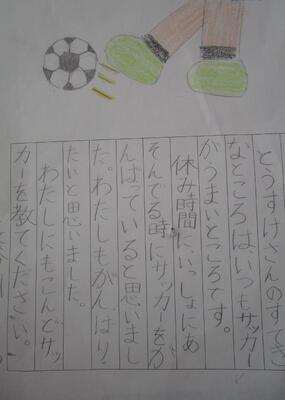 とうすけさんのすてき
なところは、いつもサッカー
がうまいところです。
休み時間に、いっしょにあ
そんでる時にサッカーをが
んばっていると思いまし
た。わたしもがんばり
たいと思いました。
わたしにもこんどサッ
カーを教てください。